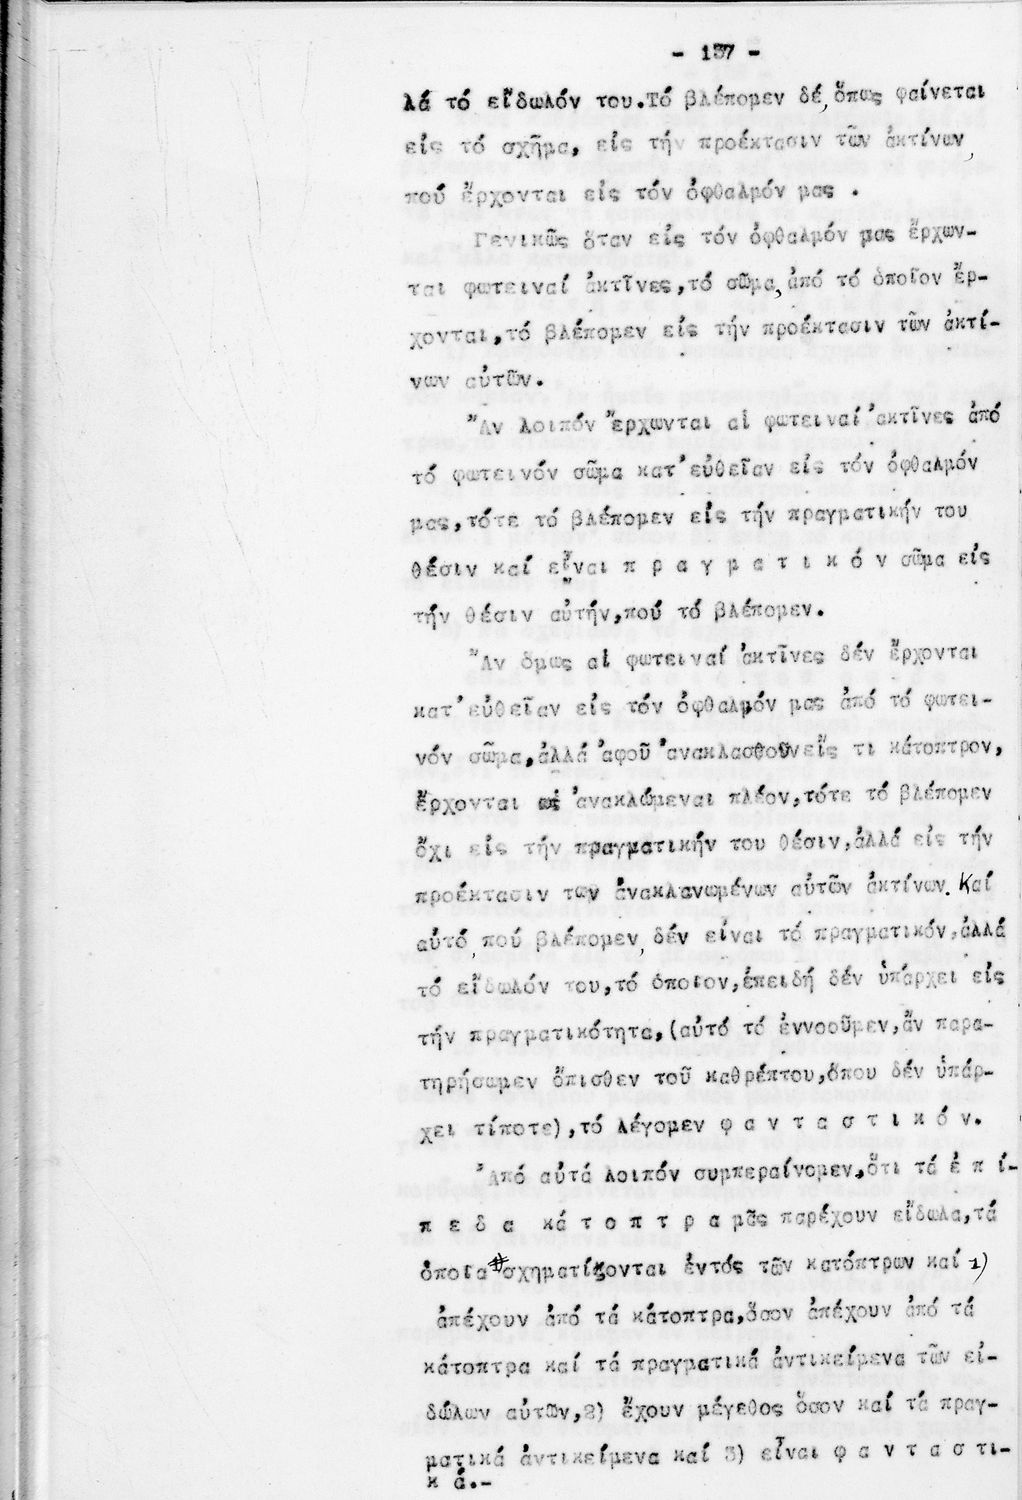 - 137 -
λά τό εἴδωλόν του.Τό βλέπομεν δέ,ὅπως φαίνεται
εἰς τό σχῆμα, εἰς τήν προέκτασιν τῶν ἀκτίνων,
πού ἔρχονται εἰς τόν ὀφθαλμόν μας .
Γενικῶς ὅταν εἰς τόν ὀφθαλμόν μας ἔρχων-
ται φωτειναί ἀκτῖνες,τό σῶμα,ἀπό τό ὁποῖον ἔρ-
χονται,τό βλέπομεν εἰς τήν προέκτασιν τῶν ἀκτί-
νων αὐτῶν.
Ἄν λοιπόν ἔρχωνται αἱ φωτειναί ἀκτῖνες ἀπό
τό φωτεινόν σῶμα κατ'εὐθεῖαν εἰς τόν ὀφθαλμόν
μας,τότε τό βλέπομεν εἰς τήν πραγματικήν του
θέσιν καί εἶναι π ρ α γ μ α τ ι κ ό ν σῶμα εἰς
τήν θέσιν αὐτήν,πού τό βλέπομεν.
Ἄν ὅμως αἱ φωτειναί ἀκτῖνες δέν ἔρχονται
κατ'εὐθεῖαν εἰς τόν ὀφθαλμόν μας ἀπό τό φωτει-
νόν σῶμα,ἀλλά ἀφοῦ ἀνακλασθοῦν εἴς τι κάτοπτρον,
ἔρχονται ὡς ἀνακλώμεναι πλέον,τότε τό βλέπομεν
ὄχι εἰς τήν πραγματικήν του θέσιν,ἀλλά εἰς τήν
προέκτασιν των ἀνακλανωμένων αὐτῶν ἀκτίνων. Καί
αὐτό πού βλέπομεν, δέν εἶναι τό πραγματικόν,ἀλλά
τό εἴδωλόν του,τό ὁποιον,ἐπειδή δέν ὑπάρχει εἰς
τήν πραγματικότητα,(αὐτό τό ἐννοοῦμεν,ἄν παρα-
τηρήσωμεν ὄπισθεν τοῦ καθρέπτου,ὅπου δέν ὑπάρ-
χει τίποτε),τό λέγομεν φ α ν τ α σ τ ι κ ό ν.
Ἀπό αὐτά λοιπόν συμπεραίνομεν,ὅτι τά ἐ π ί-
π ε δ α κ ά τ ο π τ ρ α μᾶς παρέχουν εἴδωλα,τά
ὁποῖα σχηματίζονται ἐντός τῶν κατόπτρων καί 1)
ἀπέχουν ἀπό τά κάτοπτρα,ὅσον ἀπέχουν ἀπό τά
κάτοπτρα καί τά πραγματικά ἀντικείμενα τῶν εἰ-
δώλων αὐτῶν,2) ἔχουν μέγεθος ὅσον καί τά πραγ-
ματικά ἀντικείμενα καί 3) εἶναι φ α ν τ α σ τι-
κ ά.-